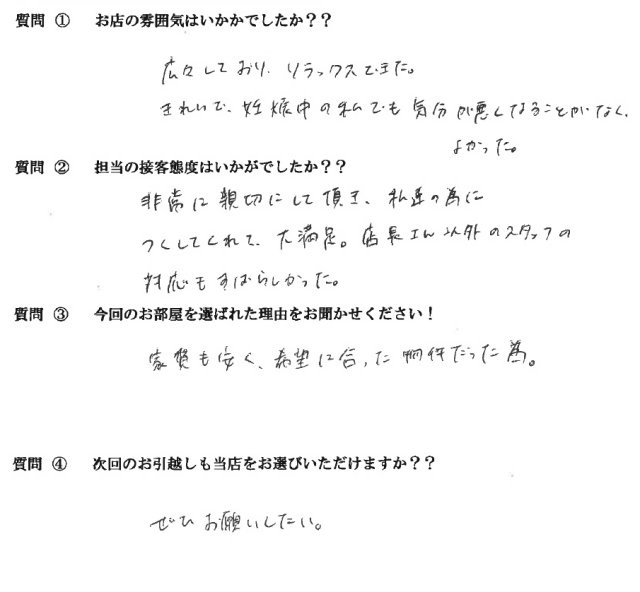 質問 ① お店の雰囲気はいかかでしたか??
広々しており、リラックスできた。
きれいで、妊娠中の私でも気分が悪くなることがなく、
よかった。
質問 ② 担当の接客態度はいかがでしたか??
非常に親切にして頂き、私達の為に
つくしてくれて、大満足。店長さん以外のスタッフの
対応もすばらしかった。
質問 ③ 今回のお部屋を選ばれた理由をお聞かせください!
家賃も安く、希望に合った物件だった為。
質問 ④ 次回のお引越しも当店をお選びいただけますか??
ぜひお願いしたい。